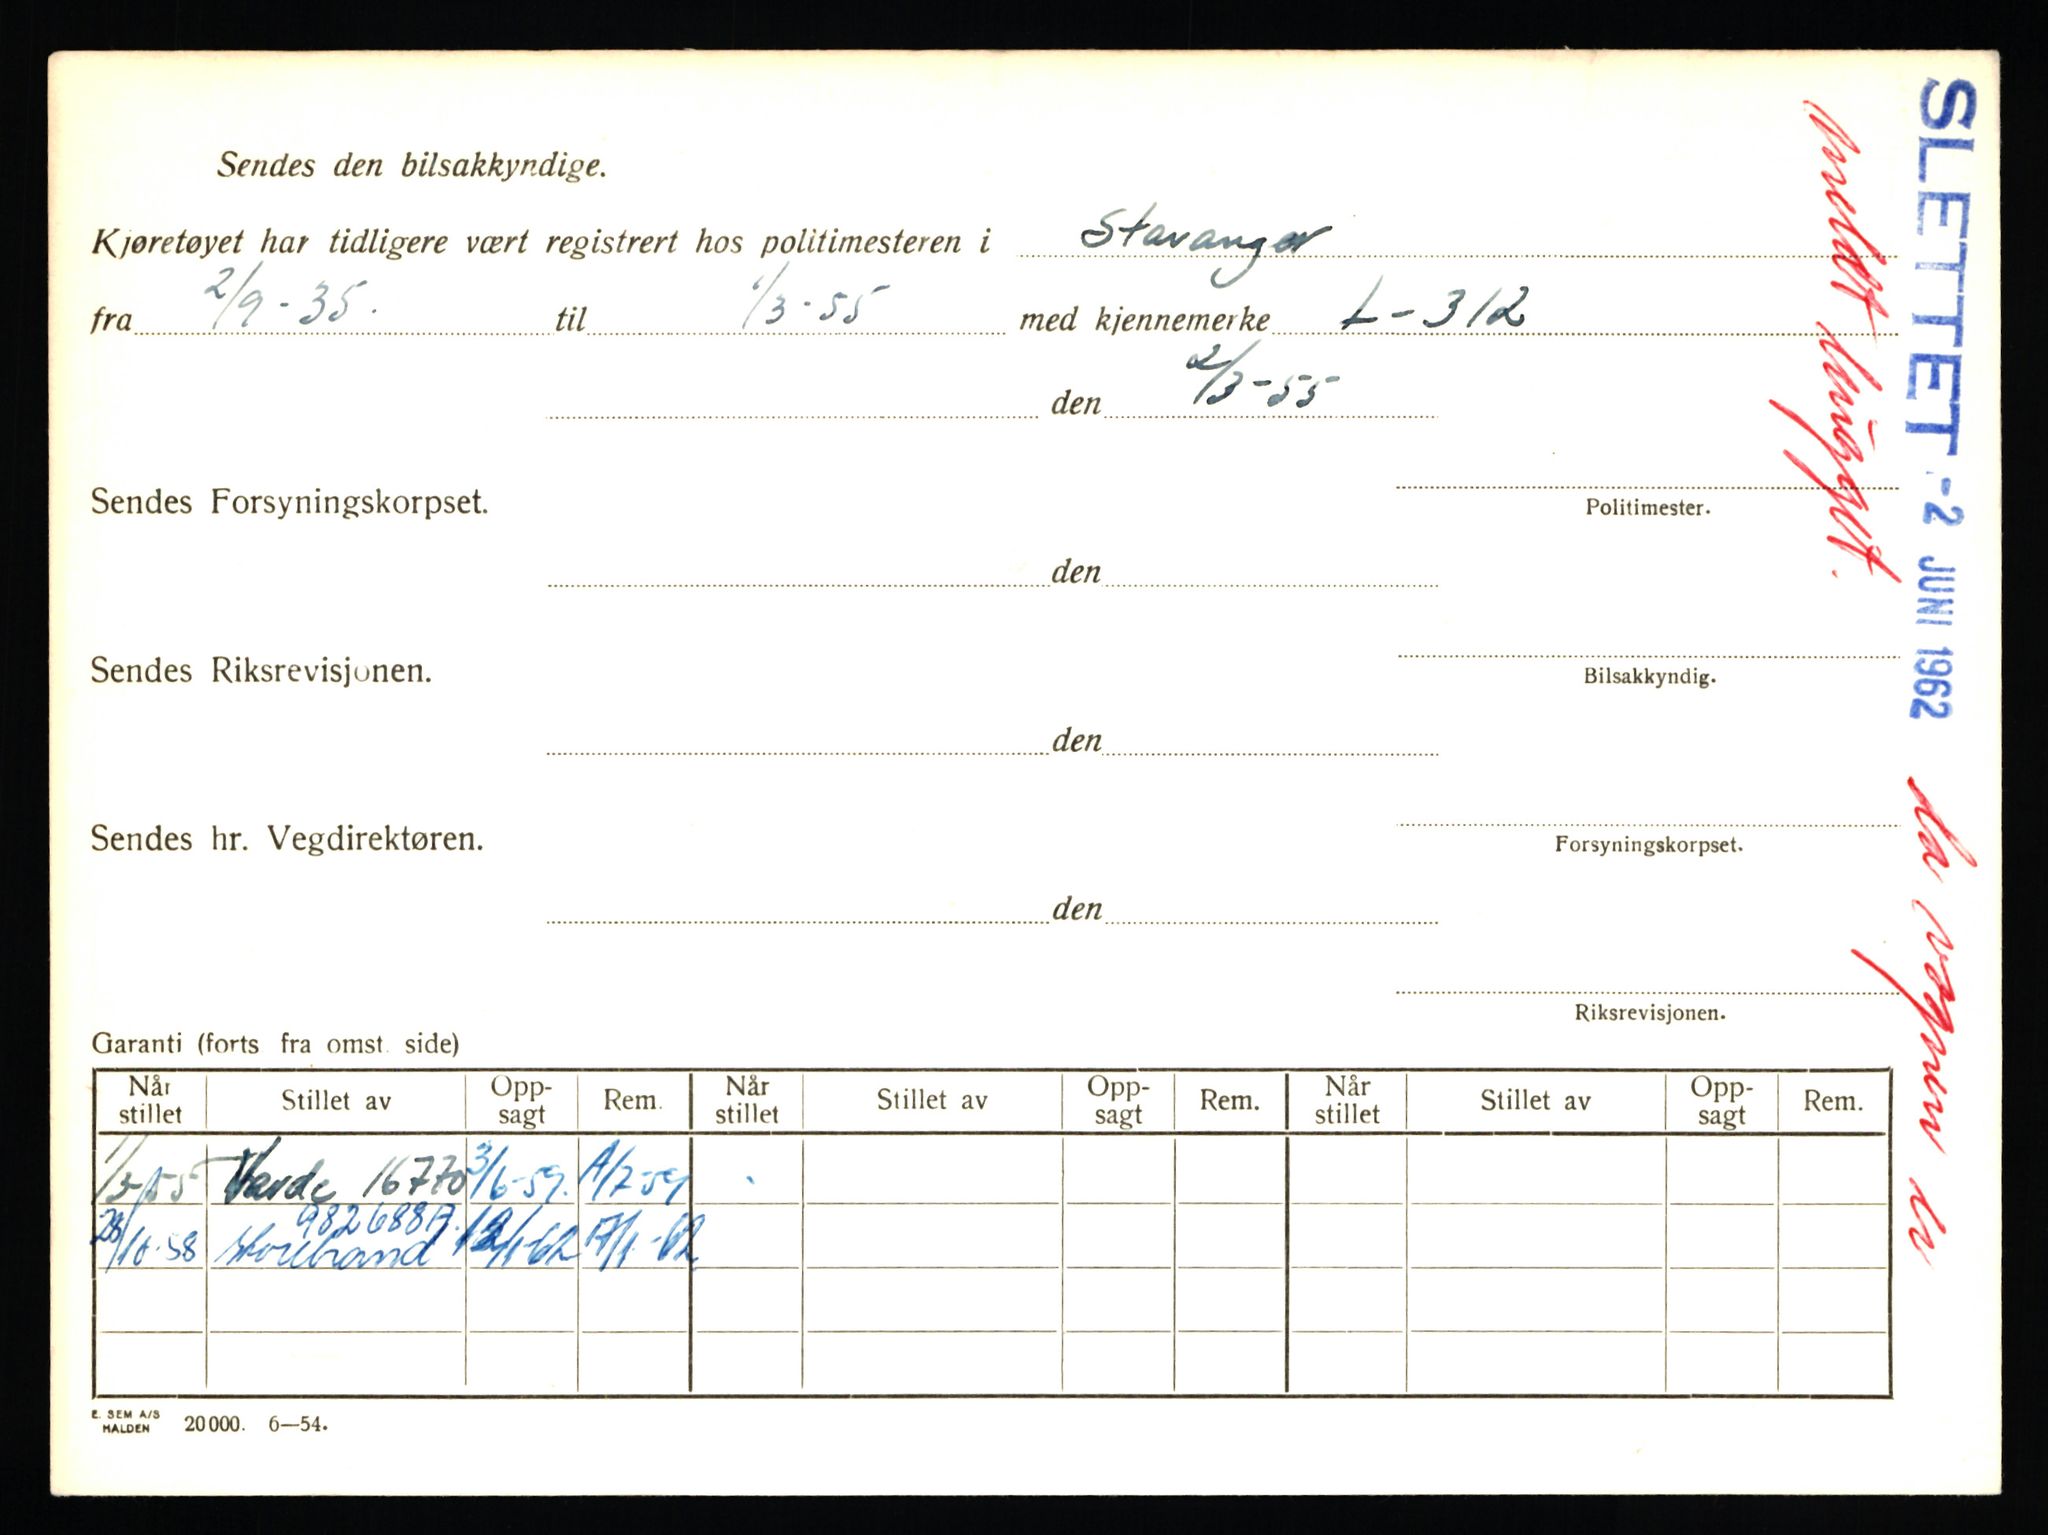 Sendes den bilsakkyndige.
Kjøretøyet har tidligere vært registrert hos politimesteren i Stavanger
fra 2/9-35. til 1/3-55 med kjennemerke L-312
den 2/3-55
Sendes Forsyningskorpset.
Politimester.
den
Sendes Riksrevisjonen.
Bilsakkyndig.
den
Sendes hr. Vegdirektøren.
Forsyningskorpset.
den
Riksrevisjonen.
Garanti (forts fra omst. side)
Når stillet Stillet av Opp-sagt Rem. Når stillet Stillet av Opp-sagt Rem. Når stillet Stillet av Opp-sagt Rem.
1/3-55 Varde 16770 3/6-59. A/7-59
982688A.
28/10-58 Storebrand
E. SEM A/S
HALDEN 20000. 6—54.
SLETTET -2 JUNI 1962 da vognen er